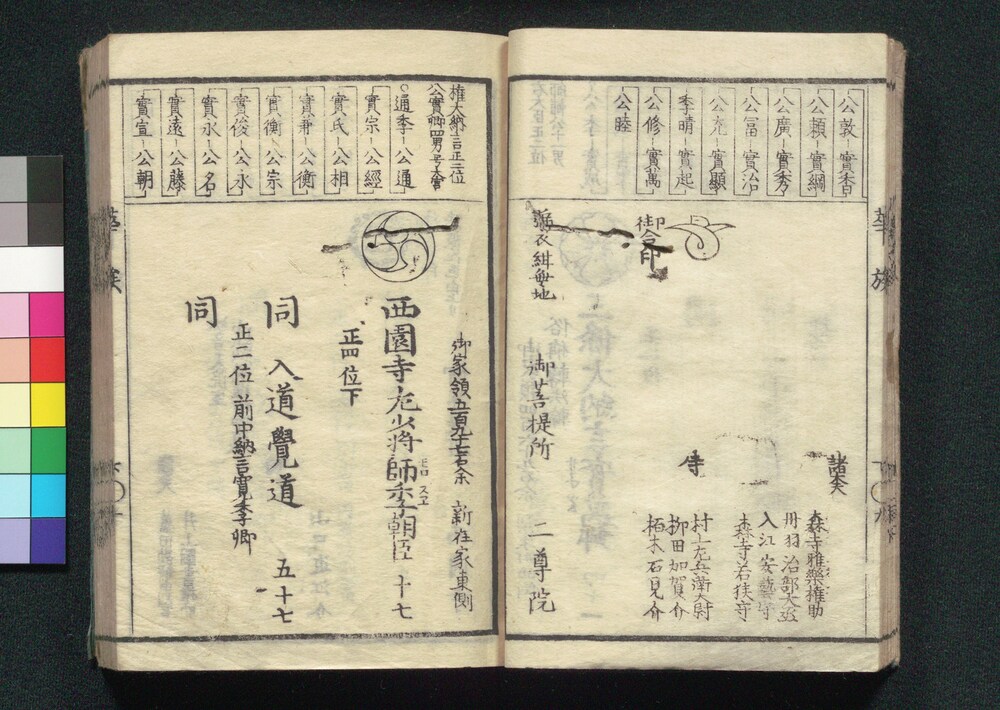 公敦 實香
公頼 實綱
公廣 實秀
公冨 實治
公充 實顯
季晴 實起
公修 實萬
公睦
御合印
諸大夫
森寺雅樂権助
丹羽治部大丞
入江安藝守
森寺若狭守
侍
村上左兵衛大尉
柳田加賀介
栢木石見介
御菩提所 二尊院
華族
権大納言正二位
公實卿四男号大宮
通季 公通
實宗 公經
實氏 公相
實兼 公衡
實衡 公宗
實俊 公永
實永 公名
實遠 公藤
實宣 公朝
御家領五百九十七石余 新在家東側
西園寺左少将師季朝臣 十七
モロ スヱ
正四位下
同 入道覺道 五十七
正二位 前中納言寛季卿
同
華族